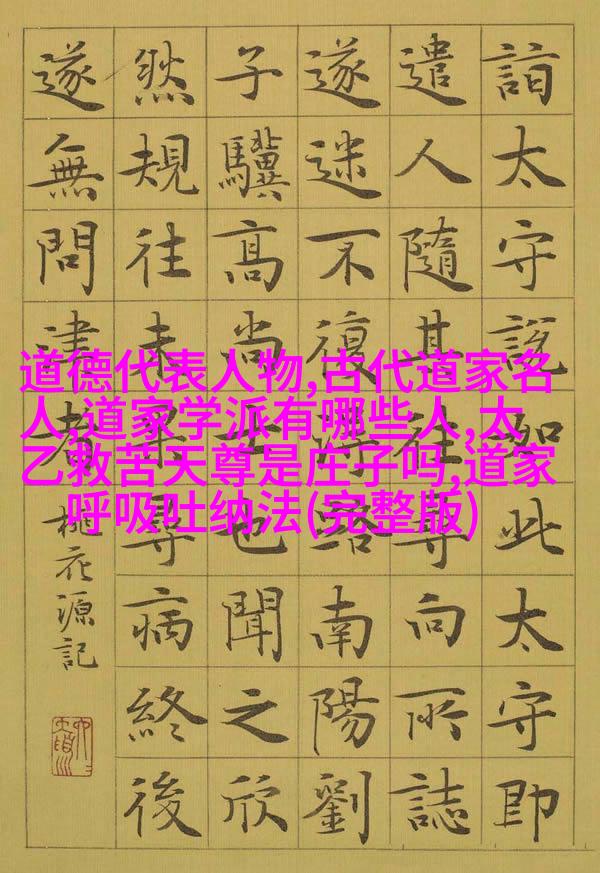 詣太守說如此太守即
遣人隨其往尋向所誌
遂迷不復得路南陽劉
子驥髙尚士也聞之欣
然規往未果尋病終後
遂無問津者
桃花源記
道德代表人物,古代道家名
人,道家学派有哪些人,太
乙救苦天尊是庄子吗,道家
呼吸吐纳法(完整版)